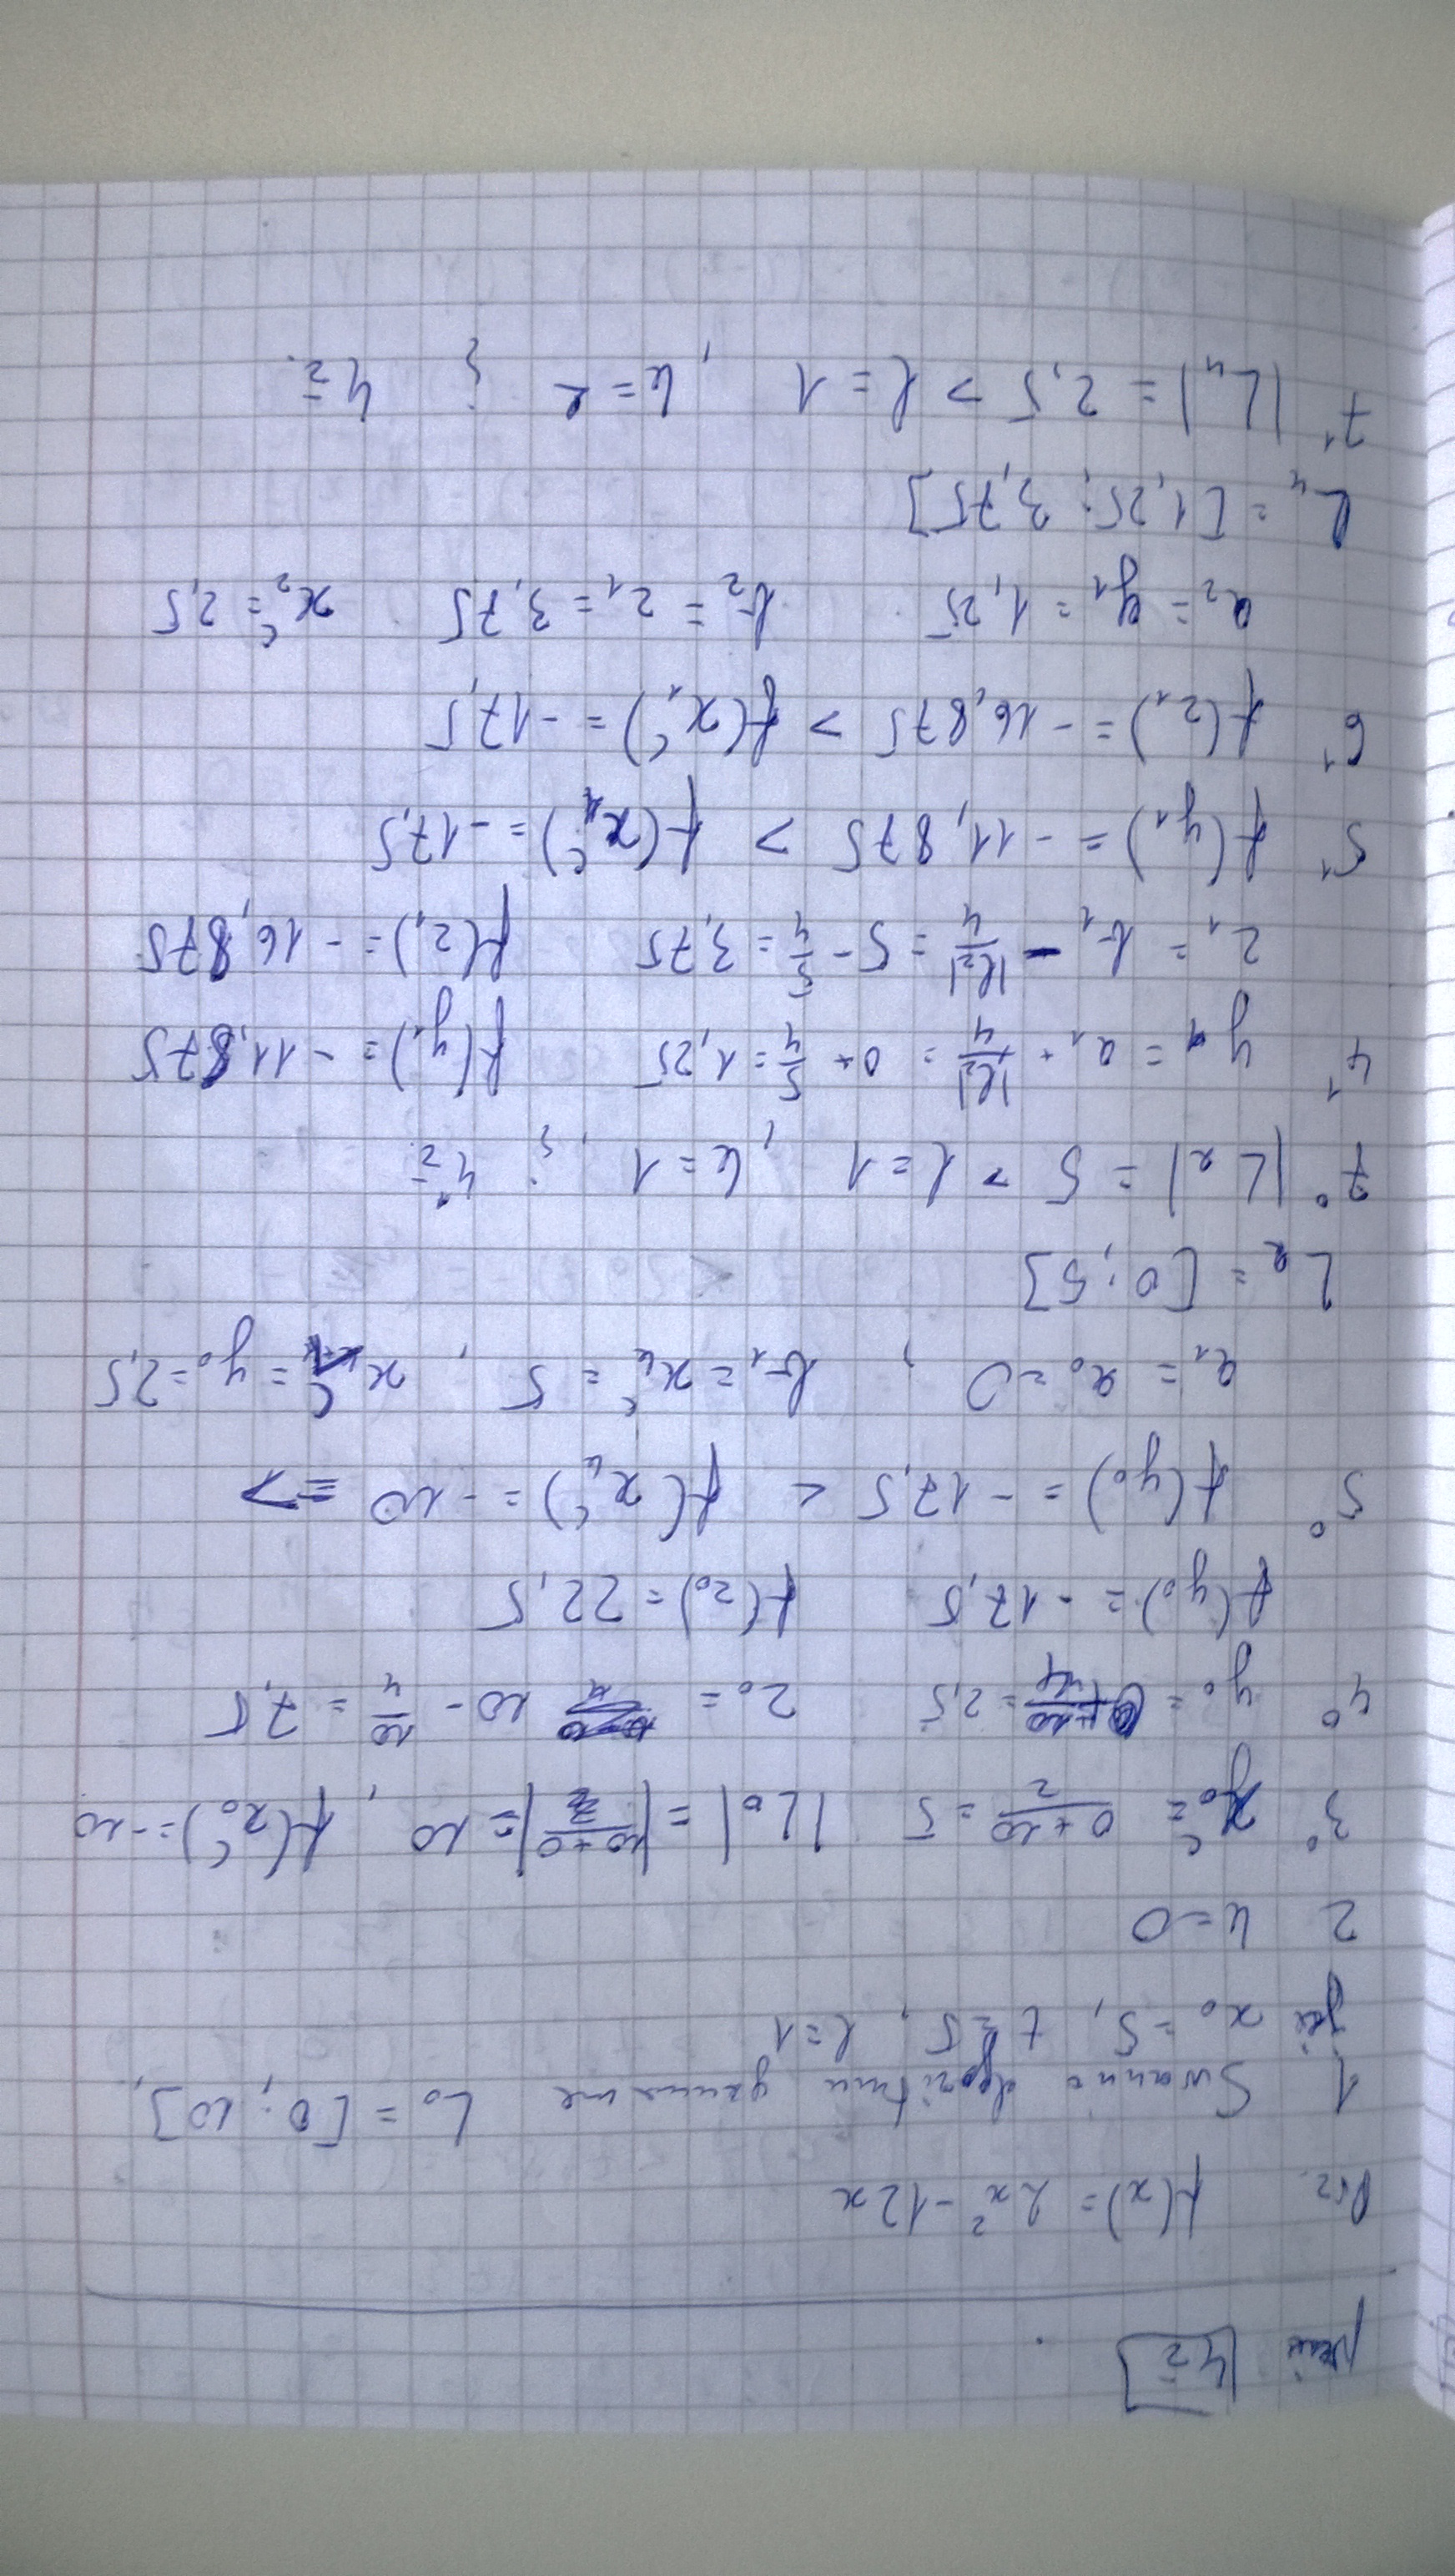 4 ž
Prz. f(x) = 2x² - 12x
1 Swanno algoritmu gauname L₀ = [0; 10],
jei x₀ = 5, t = 5, l = 1
2 k = 0
3⁰ x₀ᶜ = (0 + 10)/2 = 5 |L₀| = |10 + 0| = 10 , f(x₀ᶜ) = -10
4⁰ y₀ = 0 + 10/4 = 2,5 z₀ = 10 - 10/4 = 7,5
f(y₀) = -17,5 f(z₀) = 22,5
5⁰ f(y₀) = -17,5 < f(xₖᶜ) = -10 =>
a₁ = a₀ = 0 , b₁ = xₖᶜ = 5 , x₁ᶜ = y₀ = 2,5
L₂ = [0; 5]
7⁰ |L₂| = 5 > l = 1 , k = 1 , į 4¹ ž.
4¹ y₁ = a₁ + |L₂|/4 = 0 + 5/4 = 1,25 f(y₁) = -11,875
z₁ = b₁ - |L₂|/4 = 5 - 5/4 = 3,75 f(z₁) = -16,875
5¹ f(y₁) = -11,875 > f(x₁ᶜ) = -17,5
6¹ f(z₁) = -16,875 > f(x₁ᶜ) = -17,5
a₂ = y₁ = 1,25 b₂ = z₁ = 3,75 x₂ᶜ = 2,5
L₄ = [1,25; 3,75]
7¹ |L₄| = 2,5 > l = 1 , k = 2 į 4 ž.